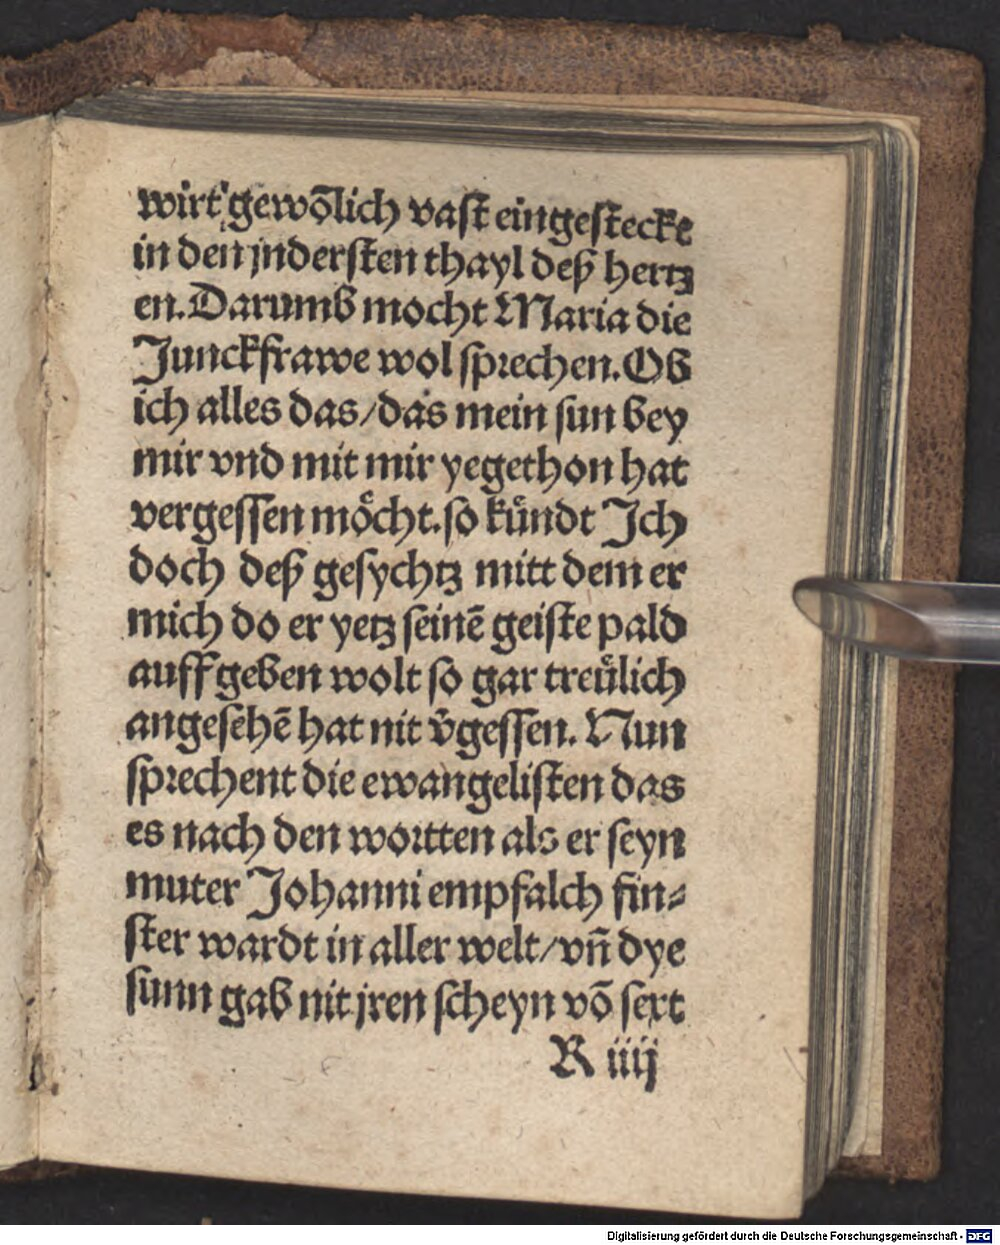 wirt gewõlich vast eingesteckt
in den jndersten thayl deß hertz
en. Darumb mocht Maria die
Junckfrawe wol sprechen. Ob
ich alles das/das mein sun bey
mir vnd mit mir yegethon hat
vergessen moͤcht. so kuͤndt Ich
doch deß gesychtz mitt dem er
mich do er yetz seinē geiste pald
auff geben wolt so gar treuͤlich
angesehē hat nit v̄gessen. Nun
sprechent die ewangelisten das
es nach den wortten als er seyn
muter Johanni empfalch fin⸗
ster wardt in aller welt/vn̄ dye
sunn gab nit jren scheyn võ sext
R iiij
Digitalisierung gefördert durch die Deutsche Forschungsgemeinschaft - DFG